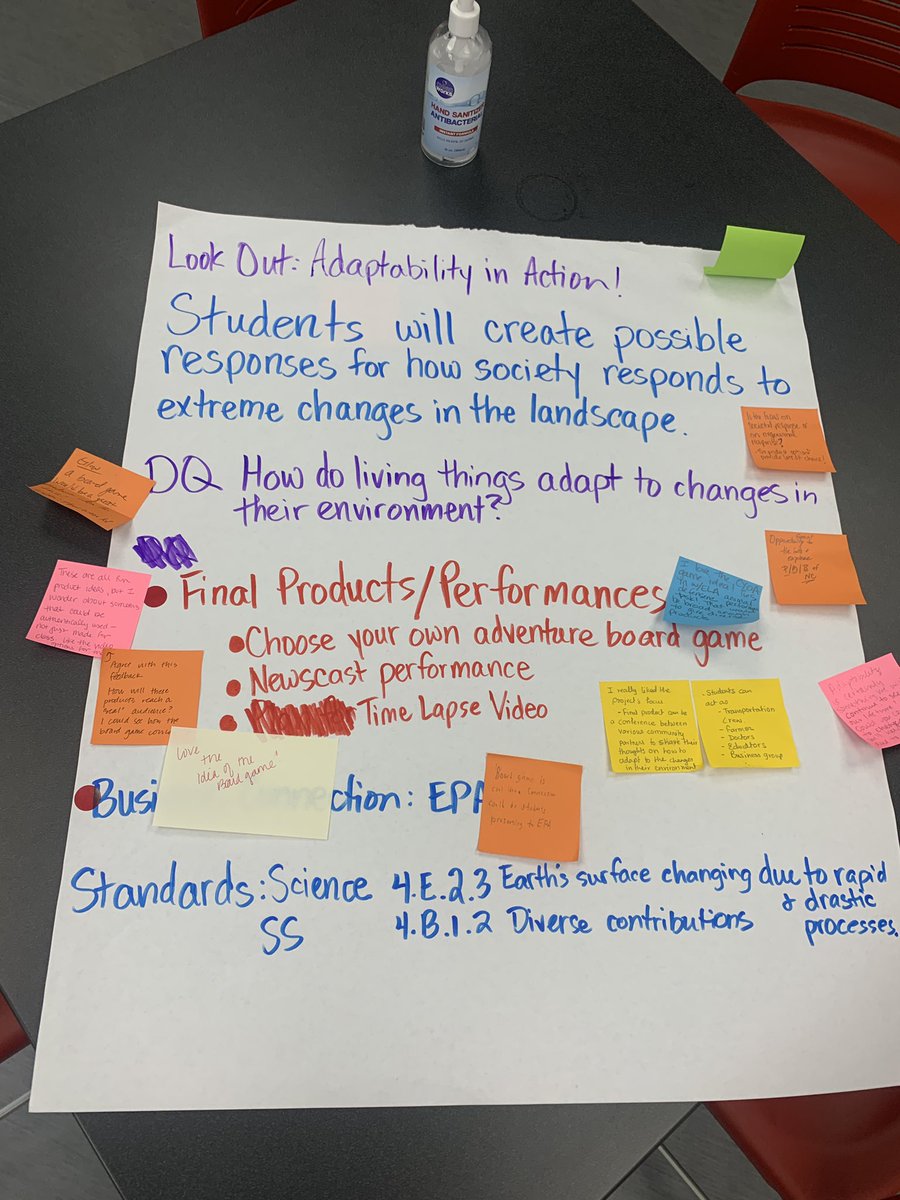 HAND SANITIZER
ANTIBACTERIAL
Look Out: Adaptability in Action!
Students will create possible
responses for how society responds to
extreme changes in the landscape.
DQ How do living things adapt to changes in
their environment?
Final Products/Performances
Choose your own adventure board game
Newscast performance
Time Lapse Video
Busi ction: EPA
Standards: Science 4.E.2.3 Earth's surface changing due to rapid
& drastic
processes.
SS 4.B.1.2 Diverse contributions
a board game
These are all fun
product ideas, but I
wonder about
that could be
authentically used-
not just made for
class, like the video
Agree with this
feedback
How will these
products reach a
"real" audience?
I could see how the
board game
Love the
idea of the
Board game!
Board game is
could be students
presenting to EPA
I really liked the
project's focus
- Final product can be a
conference between
various community
partners to share their
thoughts on how to
adapt to the changes
in their environment
- Students can
act as
- Transportation
Crew
- Farmer
- Doctors
- Educators
- Business group
I love the
game idea!
societal response
Opportunity to
explore
of
NC